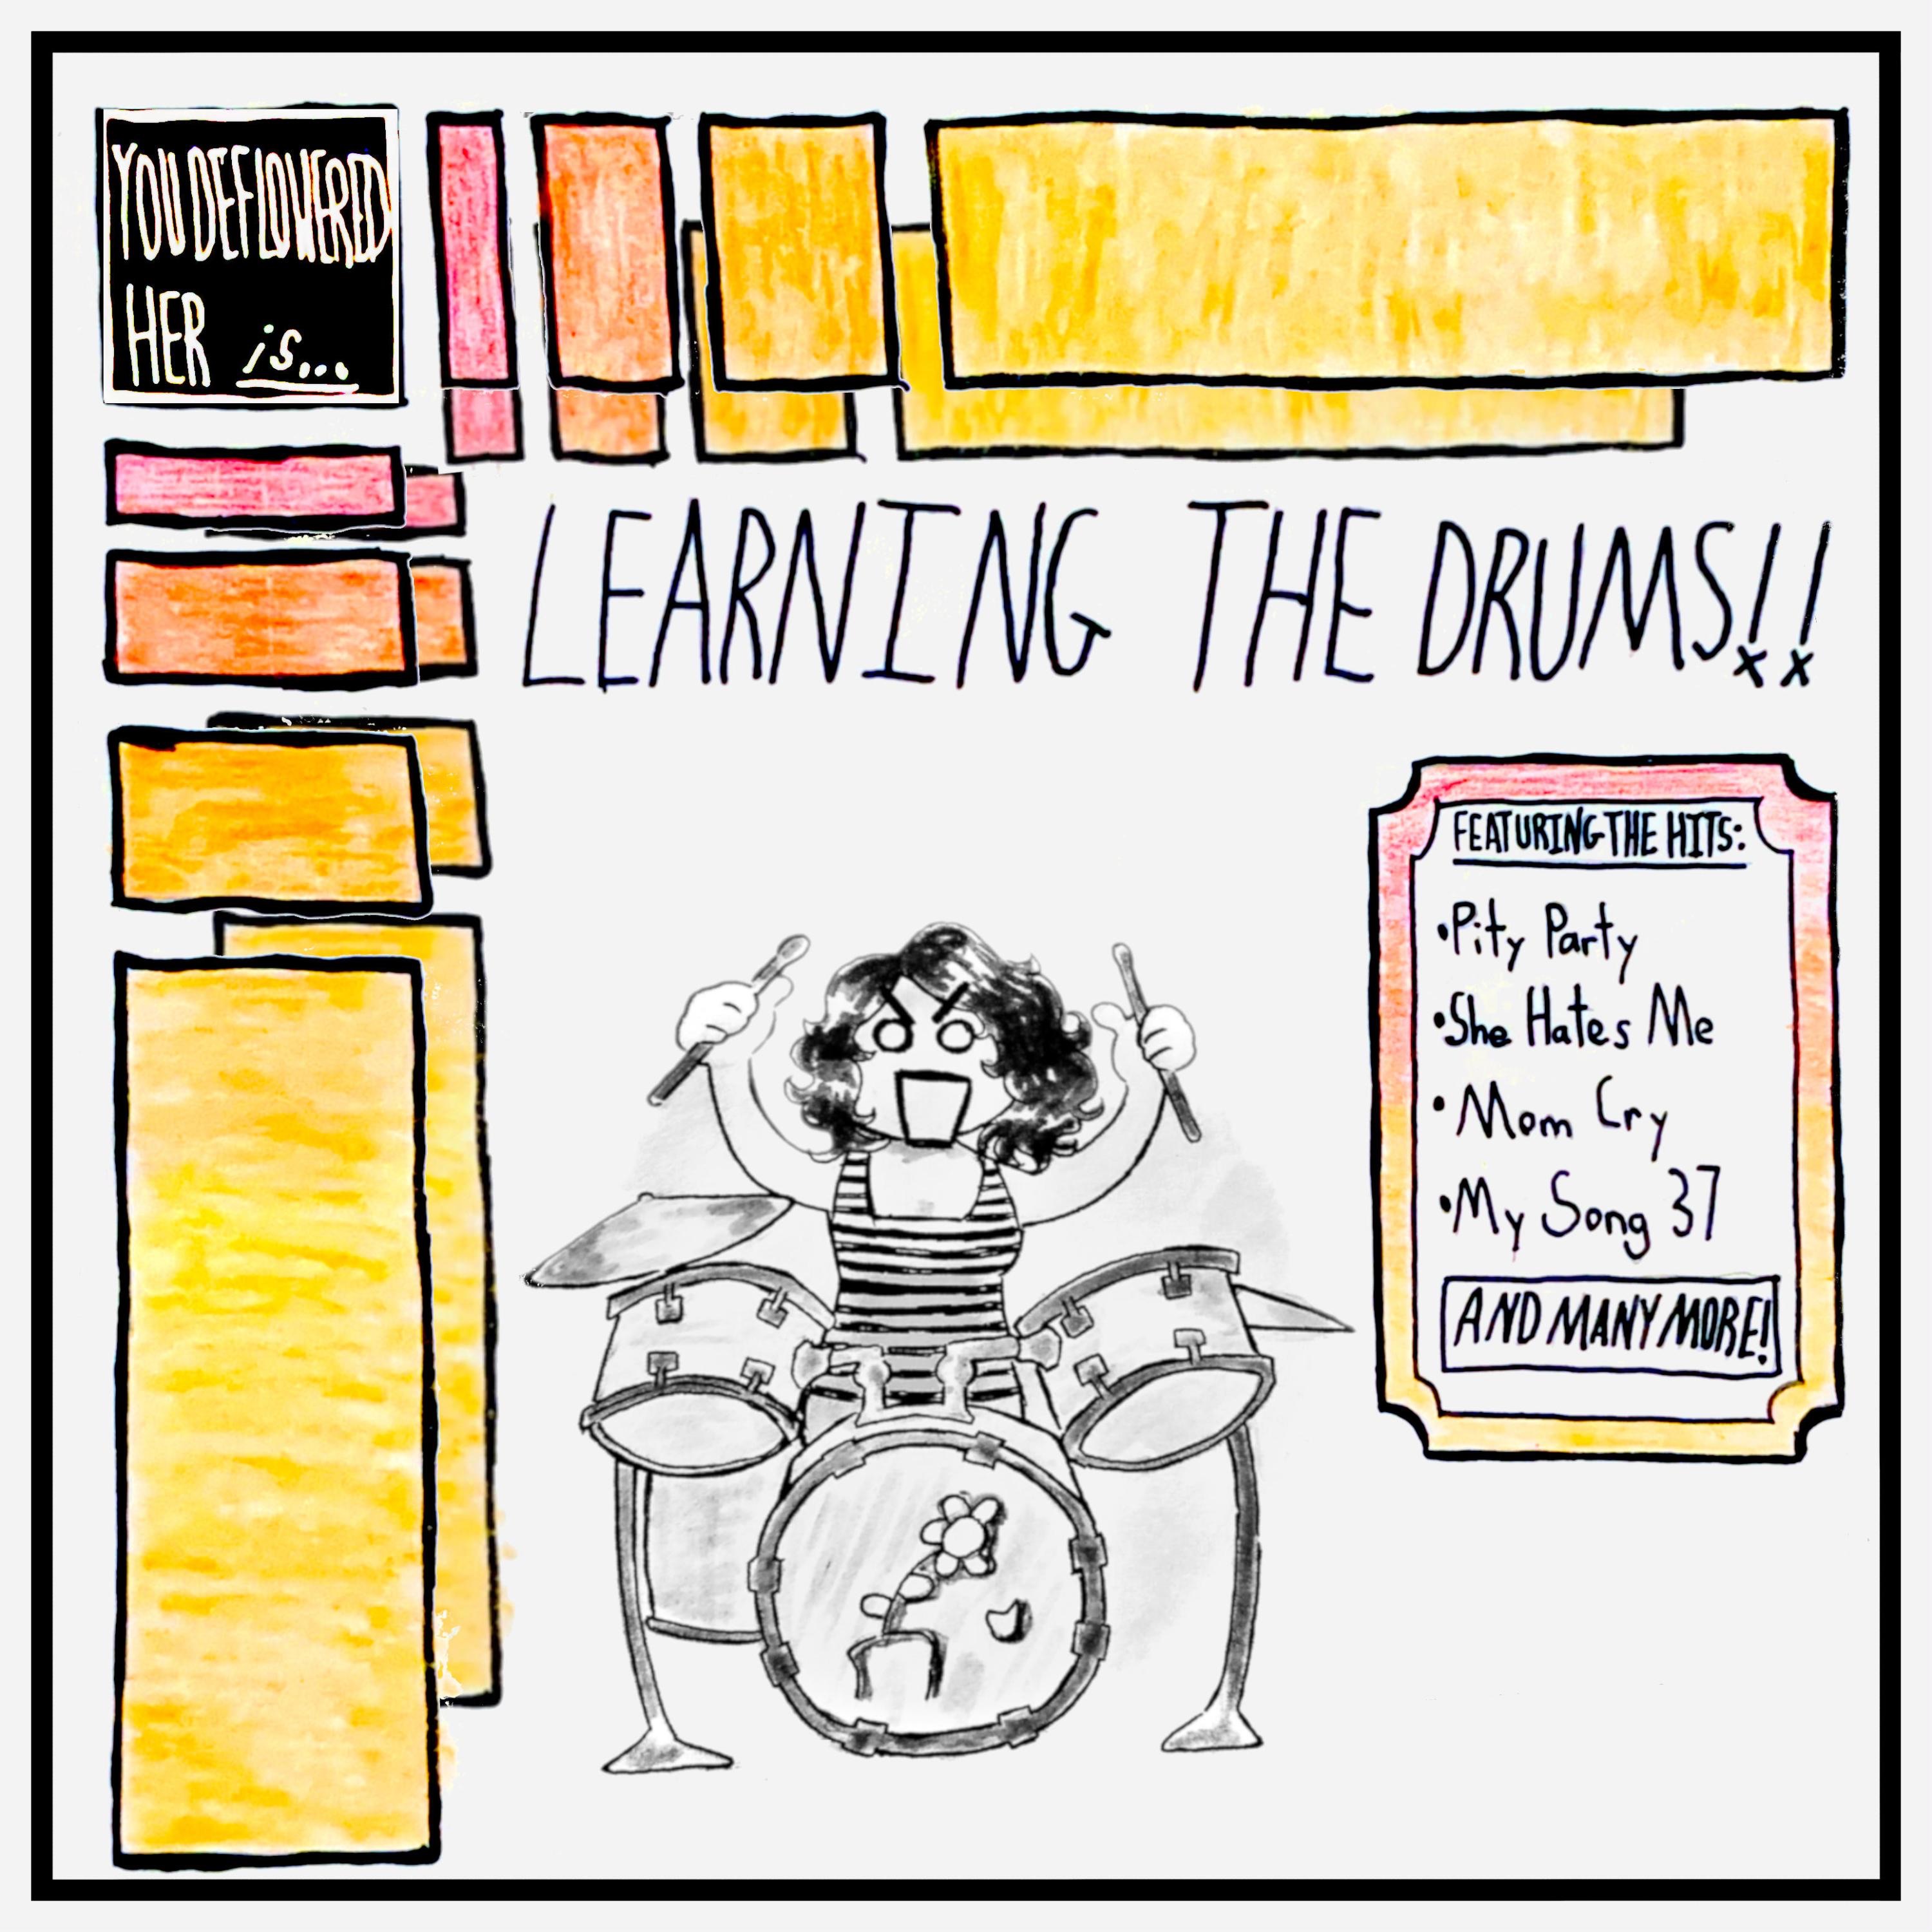 YOU DEFLOWERED
HER is...
LEARNING THE DRUMS!!
FEATURING THE HITS:
•Pity Party
•She Hates Me
•Mom Cry
•My Song 37
AND MANY MORE!